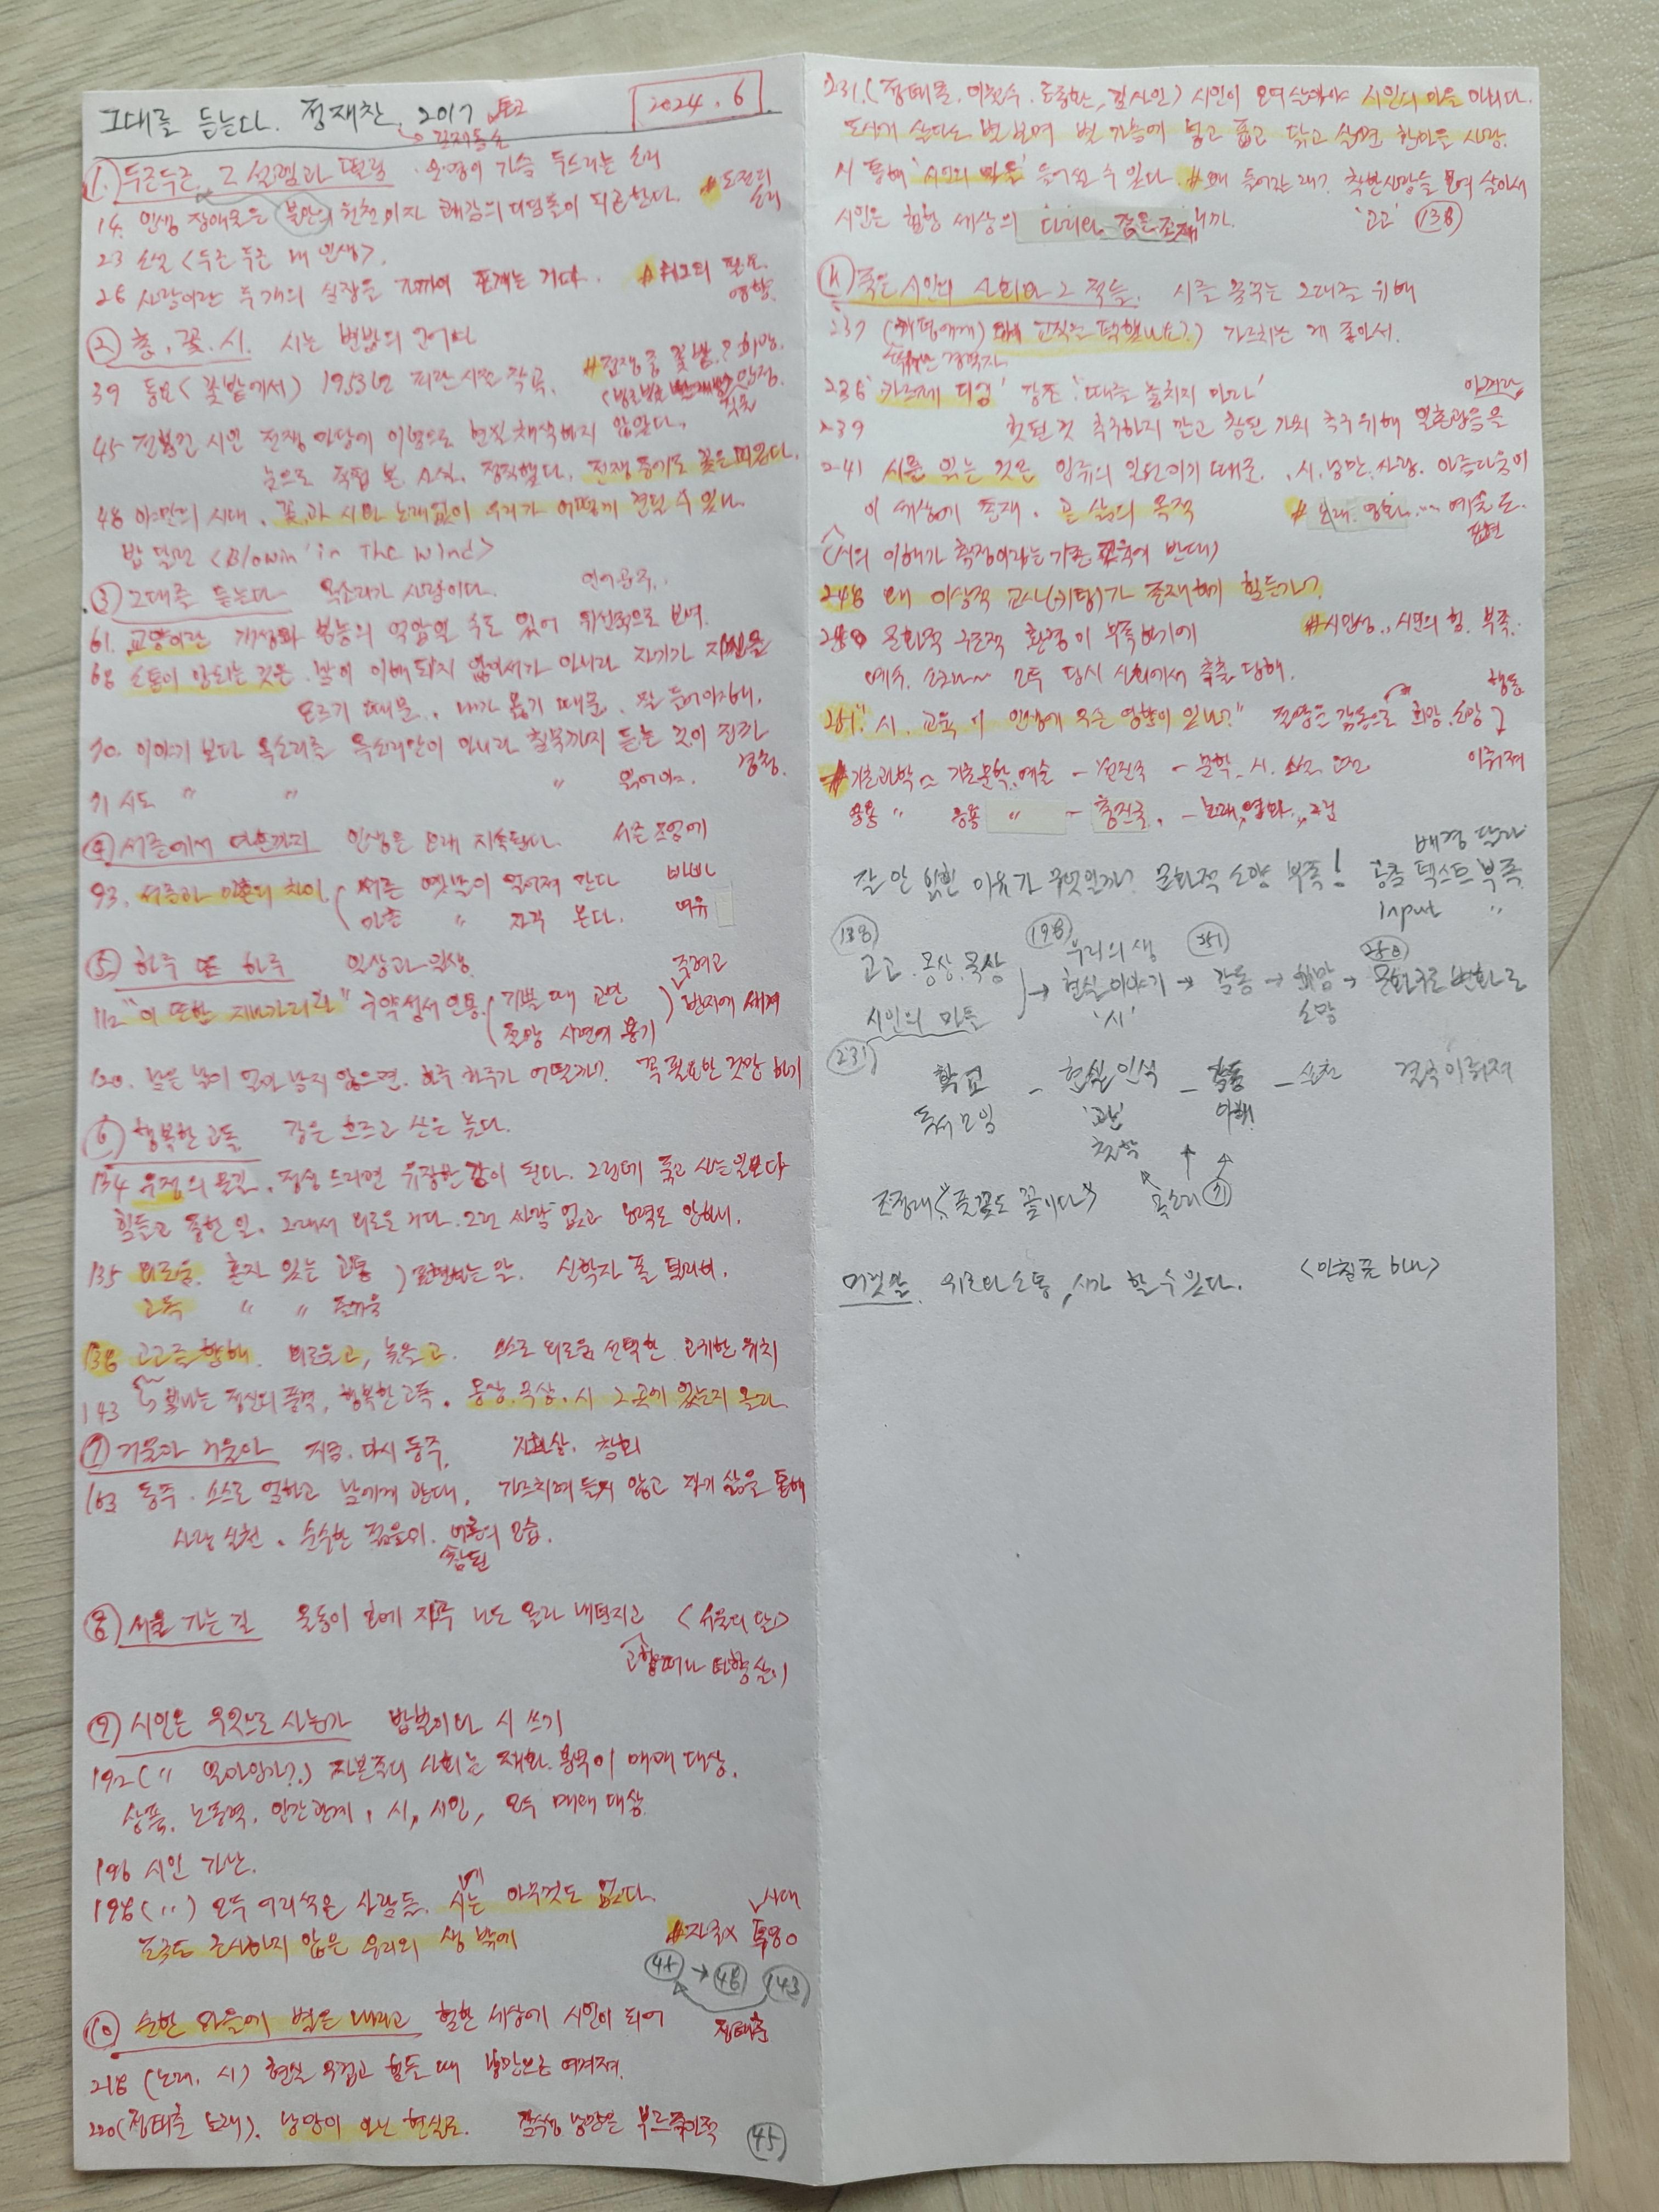 그대를 듣는다. 정재찬. 2017
2024. 6
① 두근두근 그 설렘과 떨림. 운명이 가슴 두드리는 소리
14. 인생 장애물은 불안의 원천이자 쾌감의 디딤돌이 되곤한다. # 도전의 소리
23 소설 <두근두근 내 인생>.
26 사랑이란 두 개의 심장을 포개는 거다. #
② 총. 꽃. 시. 시는 변방의 언어다
39 동요 (꽃밭에서) 1953년 피란시절 작곡. # 전쟁 중 꽃밭? 희망.
45 전봉건 시인 전쟁 이념으로 현실 채색하지 않았다.
눈으로 직접 본 소식. 정직했다. 전쟁 중에도 꽃은 피었다.
48 야만의 시대. 꽃과 시와 노래없이 우리가 어떻게 견딜 수 있나.
밥 딜런 <Blowin' in The Wind>
③ 그대를 듣는다 목소리가 사람이다.
61. 교양이란 개성과 본능의 억압일 수도 있어 위선적으로 보여.
68 소통이 안되는 것은 말이 이해되지 않아서가 아니라 자기가 자신을
모르기 때문. 내가 옳기 때문. 잘 들어야해.
70. 이야기 보다 목소리를 목소리만이 아니라 침묵까지 듣는 것이 진짜 경청.
71 시도 〃 〃 〃 읽어야.
④ 서른에서 마흔까지 인생은 오래 지속된다. 서른 즈음에
93. 서른과 마흔의 차이 ( 서른 옛말이 잊어져 간다 비비
마흔 〃 자꾸 본다. 여유
⑤ 하루 또 하루 일상과 일생.
112 "이 또한 지나가리라" 구약성서 인용. ( 기쁠 때 교만 줄여고
절망 시련에 용기 ) 반지에 새겨
120. 남은 날이 얼마 남지 않으면. 하루 하루가 어떨까? 꼭 필요한 것만 하기
⑥ 행복한 고독 강은 흐르고 산은 높다.
134 우정의 물길. 정성 드리면 유장한 강이 된다. 그런데 품고 사는일보다
힘들고 중한 일. 그래서 외로운 거다. 그런 사람 없고 노력도 안해.
135 외로움. 혼자 있는 고통 ) 표현하는 말. 신학자 폴 틸리히.
고독 〃 〃 즐거움
138 고고를 향해. 외로운 고, 높은 고. 스스로 외로움 선택한 고귀한 위치
143 빛나는 정신의 품격, 행복한 고독. 몽상. 묵상. 시 그곳에 있는지 몰라
⑦ 거울아 거울아 지금. 다시 동주. 자화상. 참회
163 동주. 스스로 엄하고 남에게 관대. 가르치려 들지 않고 자기 삶을 통해
사랑 실천. 순수한 젊은이. 어른의 모습.
참된
⑧ 서울 가는 길 몸뚱이 하나 나도 몰라 내던지고 <서울의 달>
고향떠나 타향살이
⑨ 시인은 무엇으로 사는가 밥벌이다 시 쓰기
192 (〃 얼마인가?) 자본주의 사회는 재화. 용역이 매매 대상.
상품. 노동력. 인간관계, 시, 시인, 모두 매매 대상.
196 시인 가난.
198 (〃) 모두 어리석은 사람들. 시는 아무것도 없다.
조금도 근사하지 않은 우리의 생 밖에
시대
45 → 48 143
⑩ 순한 마음에 별은 내리고 험한 세상에 시인이 되어 정태춘
218 (노래, 시) 현실 무겁고 힘들 때 낭만으로 여겨져.
220 (정태춘 노래). 낭만이 아닌 현실로. 감수성 낭만은 부르주아적 45
231. (정태춘. 도종환. 김사인) 시인이 모여 살아야 시인의 마을 아니다.
도시에 산다고 별 보며 별 가슴에 넣고 품고 닦고 살면 한마을 사람.
시 통해 '시인의 마을' 들어설 수 있다. # 왜 들어가 래? 착한사람들 모여 살아서
시인은 험한 세상의 다리와 같은 존재니까. '고고' 138
⑪ 죽은 시인의 사회와 그 적들. 시를 꿈꾸는 그대를 위해
237 (키팅에게) 왜 교직을 택했나요?) 가르치는 게 좋아서.
236 '카르페 디엠' 강조 '때를 놓치지 마라' 아껴라
239 헛된 것 추구하지 말고 참된 가치 추구위해 일촌광음을
241 시를 읽는 것은 인류의 일원이기 때문. 시. 낭만. 사랑. 아름다움이
이 세상에 존재. 곧 삶의 목적 # 노래. 영화... 예술도. 표현
(시의 이해가 측정이라는 기존 교육에 반대)
248 왜 이상적 교사(키팅)가 존재하기 힘든가?
250 문화적 구조적 환경이 부족하기에 # 시민성, 시민의 힘. 부족.
예수. 소크라~ 모두 당시 사회에서 축출 당해.
251 "시. 교육이 인생에 무슨 영향이 있나?" 절망은 감동으로 희망. 소망 행동
이뤄져
# 기초과학 ~ 기초문학. 예술 - 선진국 - 문학. 시. 소설 고전
응용 〃 응용 〃 - 후진국. - 노래, 영화, 그림
잘 안 읽힌 이유가 무엇일까? 문화적 소양 부족! 공통 텍스트 부족.
배경 달라
Input 〃
138 198 251 250
고고. 몽상. 묵상 우리의 생
시인의 마을 → 현실이야기 → 감동 → 희망 → 문화구조변화로
'시' 소망
231
학교 - 현실인식 - 감동 - 실천 결국 이뤄져
독서모임 '고난' 이해!
철학
조정래 "풀꽃도 꽃이다" 목소리 71
머릿말. 위로와 소통, 시가 할 수 있다. <마침표 하나>